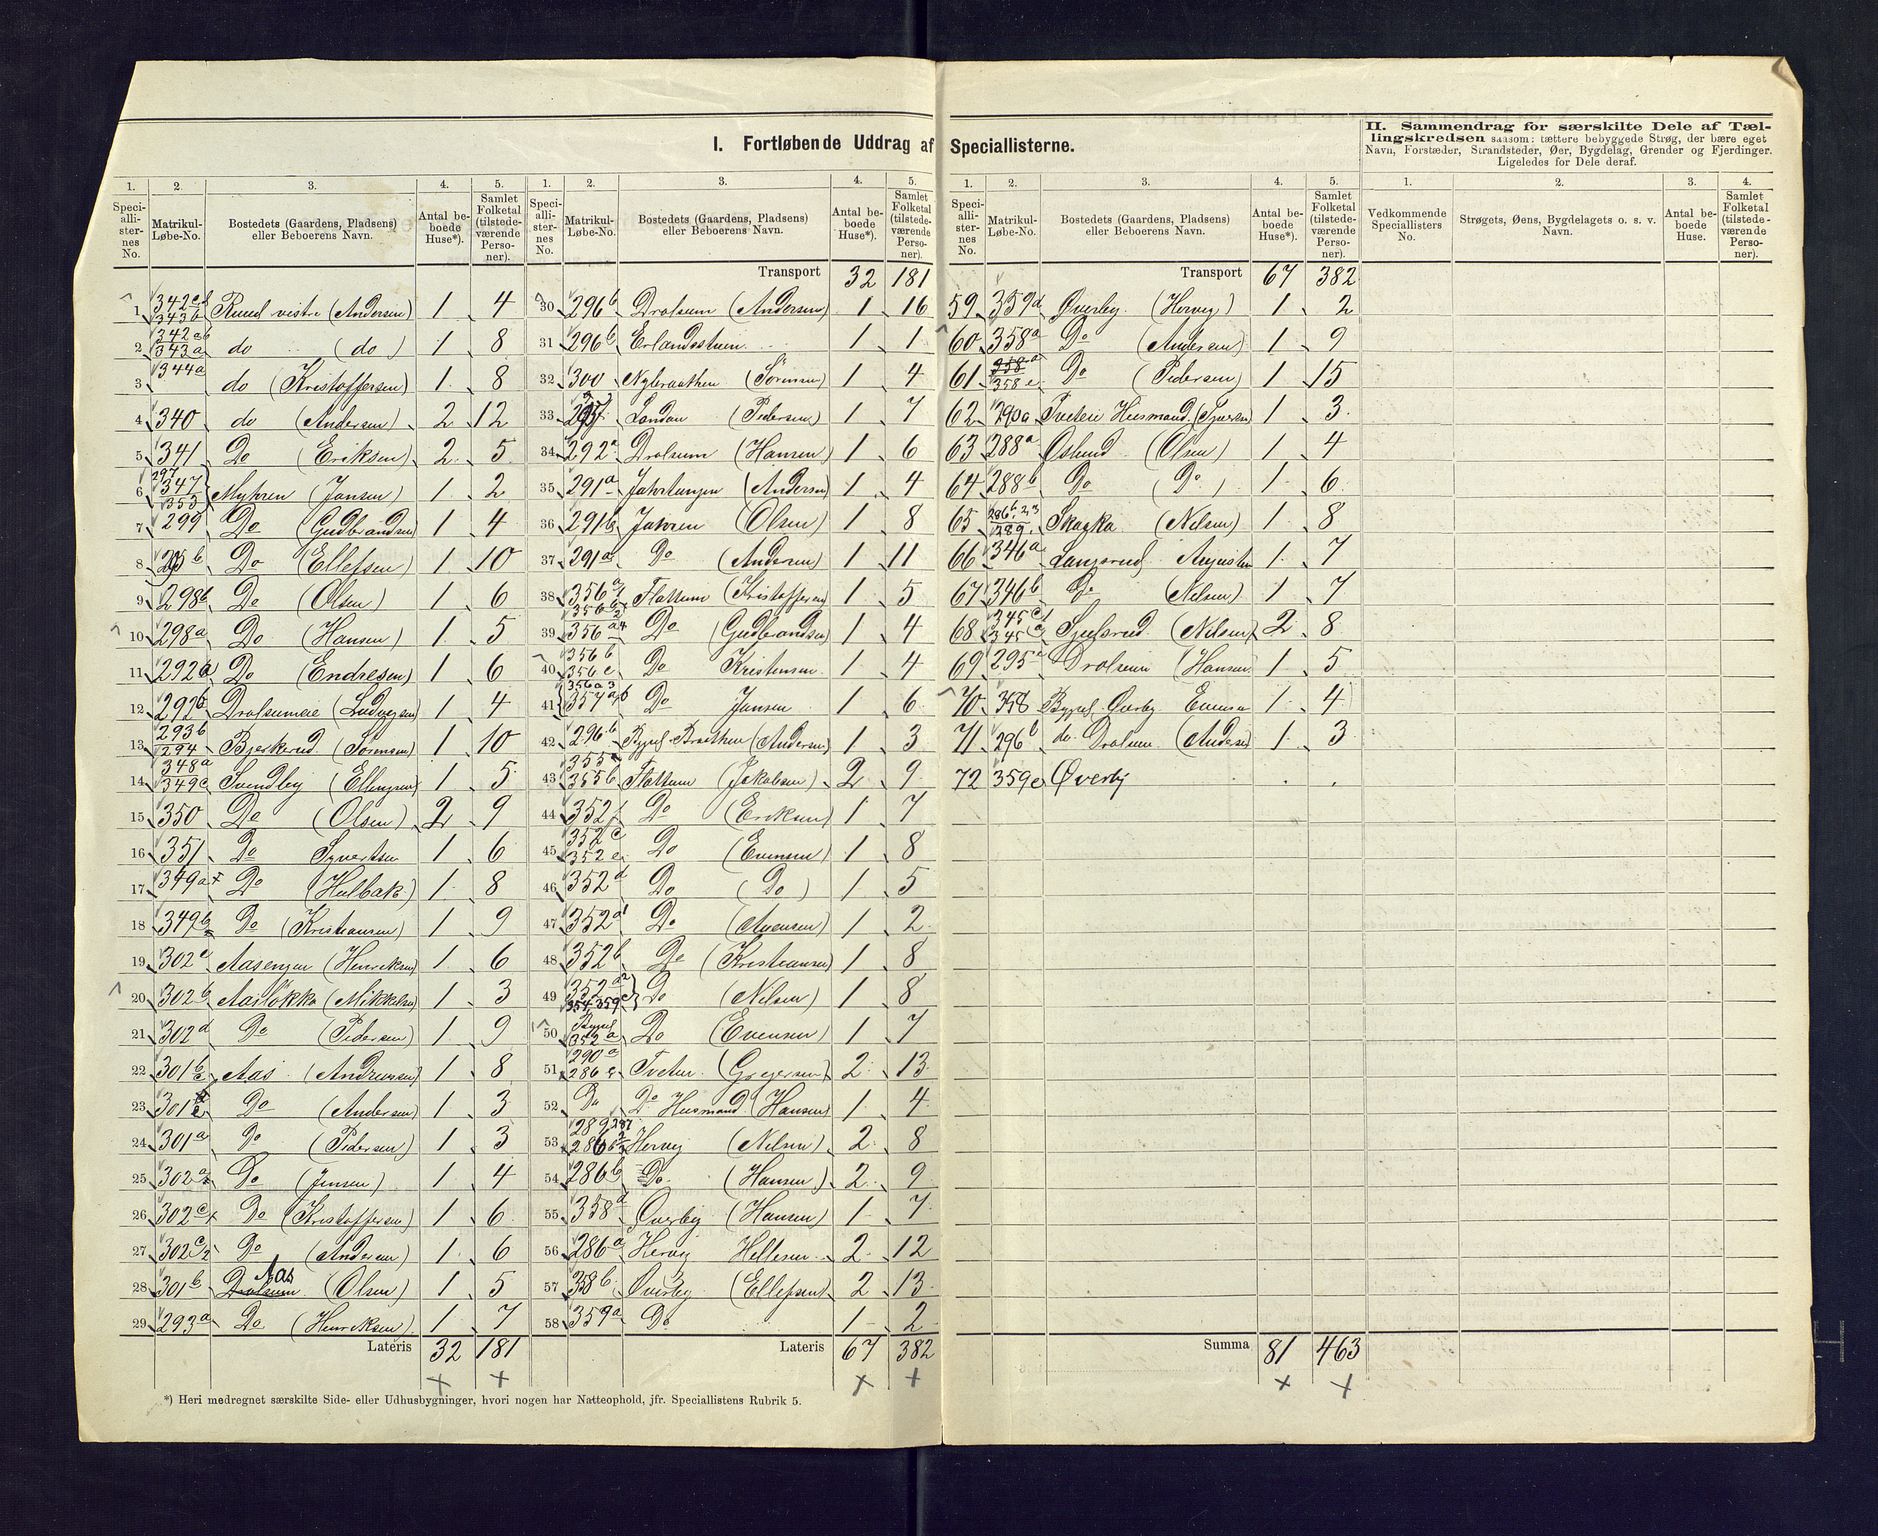 I. Fortløbende Uddrag af Speciallisterne.
II. Sammendrag for særskilte Dele af Tæl-
lingskredsen saasom: tættere bebyggede Strøg, der bære eget
Navn, Forstæder, Strandsteder, Øer, Bygdelag, Grender og Fjerdinger.
Ligeledes for Dele deraf.
1. 2. 3. 4. 5. 1. 2. 3. 4. 5. 1. 2. 3. 4. 5. 1. 2. 3. 4.
Speci-alli-sternes No. Matrikul-Løbe-No. Bostedets (Gaardens, Pladsens) eller Beboerens Navn. Antal be-boede Huse*). Samlet Folketal (tilstede-værende Perso-ner).
Speci-alli-sternes No. Matrikul-Løbe-No. Bostedets (Gaardens, Pladsens) eller Beboerens Navn. Antal be-boede Huse*). Samlet Folketal (tilstede-værende Perso-ner).
Speci-alli-sternes No. Matrikul-Løbe-No. Bostedets (Gaardens, Pladsens) eller Beboerens Navn. Antal be-boede Huse*). Samlet Folketal (tilstede-værende Perso-ner).
Vedkommende Speciallisters No. Strøgets, Øens, Bygdelagets o. s. v. Navn. Antal be-boede Huse. Samlet Folketal (tilstede-værende Perso-ner).
1 343b Ruud vestre (Andersen) 1 4
2 343a do (do) 1 8
3 344a do (Kristoffersen) 1 8
4 340 do (Andersen) 2 12
5 341 Do (Eriksen) 2 5
6 297 347 353 Myhren (Jansen) 1 2
7 299 Do (Gudbrandsen) 1 4
8 Do (Ellefsen) 1 10
9 298b Do (Olsen) 1 6
10 298a Do (Hansen) 1 5
11 292a Do (Endresen) 1 6
12 292b (Ludvigsen) 1 4
13 293b 294 Bjerkerud (Sørensen) 1 10
14 348a 349c Svendby (Ellingsen) 1 5
15 350 Do (Olsen) 2 9
16 351 Do Syvertsen 1 6
17 349a Do (Hulbak) 1 8
18 349b Do (Kristiansen) 1 9
19 302e Aasengen (Henriksen) 1 6
20 302b Aasløkka (Mikkelsen) 1 3
21 302d Do (Pedersen) 1 9
22 301b Aas (Andreassen) 1 8
23 301 Do (Andersen) 1 3
24 301a Do (Pedersen) 1 3
25 302a Do (Jensen) 1 4
26 302c Do (Kristoffersen) 1 6
27 302c/2 Do (Andersen) 1 6
28 301b Aas (Olsen) 1 5
29 293a Do (Henriksen) 1 7
Lateris 32 181
Transport 32 181
30 296b Drolsum (Andersen) 1 16
31 296b Erlandstuen 1 1
32 300 Nybraathen (Sörensen) 1 4
33 Landan (Pedersen) 1 7
34 292a Drolsum (Hansen) 1 6
35 291a (Andersen) 1 4
36 291b Jahren (Olsen) 1 8
37 291a Do (Andersen) 1 11
38 356a 356b Flattum (Kristoffersen) 1 5
39 356a4 Do (Gudbrandsen) 1 4
40 356b 356c Do Kristensen 1 4
41 356a3 Do Jansen 1 6
42 296b Bygsl. Braathen (Andersen) 1 3
43 355b Flattum (Jakobsen) 2 9
44 352f Do (Eriksen) 1 7
45 352c 352e Do (Evensen) 1 8
46 352d Do (Do) 1 5
47 352a1 Do 1 2
48 352b Do (Kristiansen) 1 8
49 352a2 354 359c Do (Nilsen) 1 8
50 Bygsl 352a Do (Evensen) 1 7
51 290a 286 Tveten (Gregersen) 2 13
52 Do Do Husmand (Hansen) 1 4
53 289 287 286 Hervig (Nilsen) 2 8
54 286b Do (Hansen) 2 9
55 358d Øverby (Hansen) 1 7
56 286a Hervig Hellesen 2 12
57 358b Øverby (Ellefsen) 2 13
58 359a Do 1 2
Lateris 67 382
Transport 67 382
59 359d Øverby (Hervig) 1 2
60 358a Do (Andersen) 1 9
61 358e Do (Pedersen) 1 15
62 290a Tveten Husmand (Syversen) 1 3
63 288a Oslund (Olsen) 1 4
64 288b Do (Do) 1 6
65 289 Skagka (Nilsen) 1 8
66 346a Langerud Augustin 1 7
67 346b Do (Nilsen) 1 7
68 345c (Nilsen) 2 8
69 295a Drolsum (Hansen 1 5
70 358 Bygsl. Øverby Evensen 1 4
71 296b do Drolsum (Andersen) 1 3
72 359e Øverby
Summa 81 463
*) Heri medregnet særskilte Side- eller Udhusbygninger, hvori nogen har Natteophold, jfr. Speciallistens Rubrik 5.